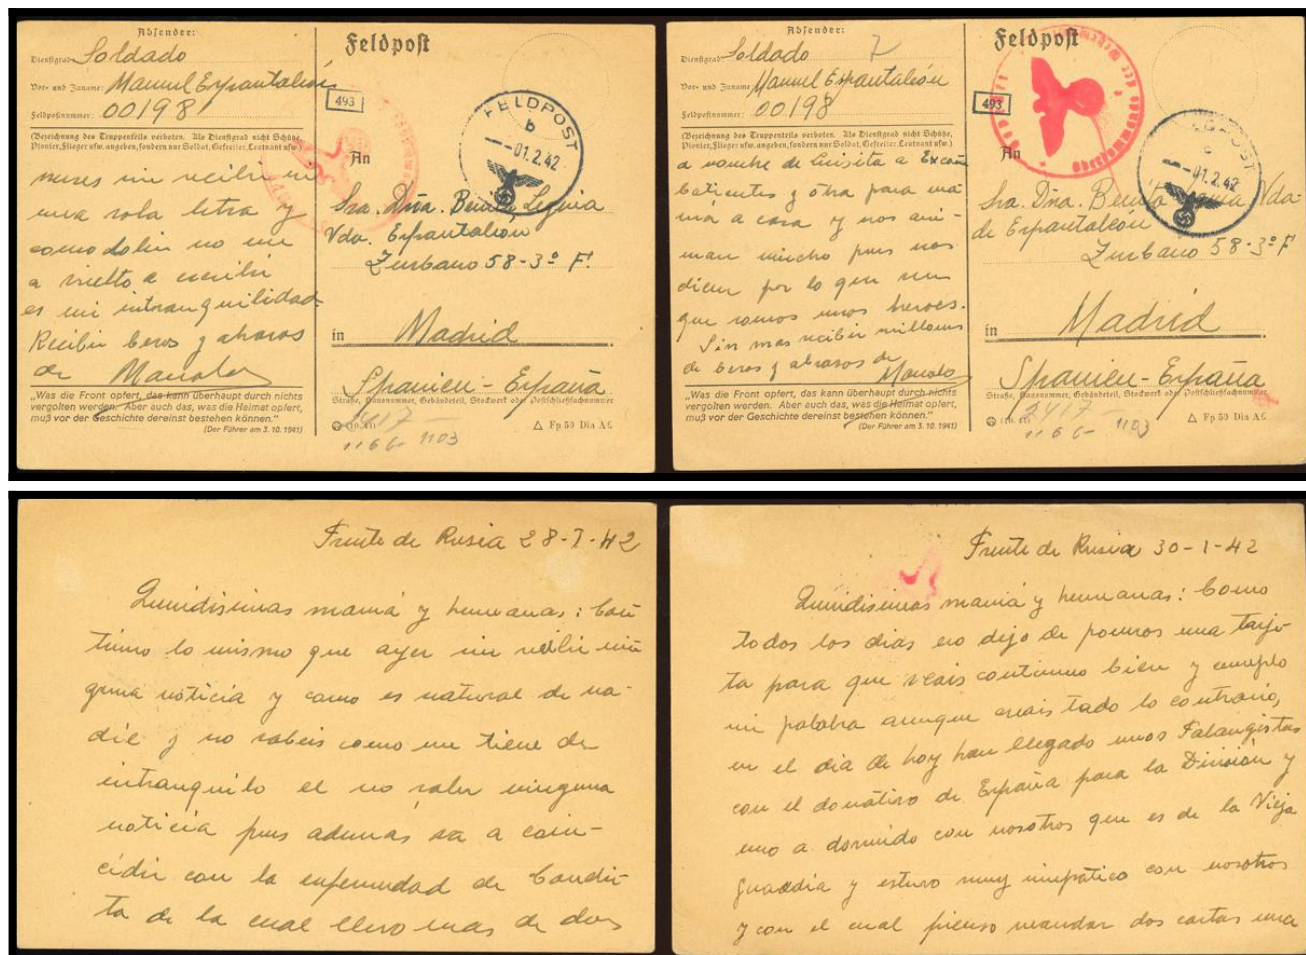 Absender:
Dienstgrad: Soldado
Vor- und Zuname: Manuel Espantaleón
Feldpostnummer: 00198
(Bezeichnung des Truppenteils verboten. Als Dienstgrad nicht Schütze,
Pionier, Flieger usw. angeben, sondern nur Soldat, Gefreiter, Leutnant usw.)
meses sin recibir ni
una sola letra y
como no me
a vuelto a escribir
es mi intranquilidad.
Recibir besos y abrazos
de Manolo
„Was die Front opfert, das kann überhaupt durch nichts
vergolten werden. Aber auch das, was die Heimat opfert,
muß vor der Geschichte dereinst bestehen können."
(Der Führer am 3. 10. 1941)
Feldpost
493
FELDPOST
b
-01.2.42
An
Sra. Dña. Benita
Vda. Espantaleón
Zurbano 58-3º F.
in Madrid
Spanien - España
Straße, Hausnummer, Gebäudeteil, Stockwerk oder Postschließfachnummer
2417
1166- 1103
△ Fp 50 Din A6
Absender:
Dienstgrad: Soldado 7
Vor- und Zuname: Manuel Espantaleón
Feldpostnummer: 00198
(Bezeichnung des Truppenteils verboten. Als Dienstgrad nicht Schütze,
Pionier, Flieger usw. angeben, sondern nur Soldat, Gefreiter, Leutnant usw.)
a nombre de Luisita a Excom
batientes y otra para ma
má a casa y nos ani-
man mucho pues nos
dicen por lo que
que somos unos heroes.
Sin mas recibir millones
de besos y abrazos de
Manolo
„Was die Front opfert, das kann überhaupt durch nichts
vergolten werden. Aber auch das, was die Heimat opfert,
muß vor der Geschichte dereinst bestehen können."
(Der Führer am 3. 10. 1941)
Feldpost
493
FELDPOST
-01.2.42
An
Sra. Dna. Benita Vda.
de Espantaleón
Zurbano 58-3º F
in Madrid
Spanien - España
Straße, Hausnummer, Gebäudeteil, Stockwerk oder Postschließfachnummer
2417
1166- 1103
△ Fp 50 Din A6
Frente de Rusia 28-1-42
Queridisimas mamá y hermanas: Con
tinuo lo mismo que ayer sin recibir nin
guna noticia y como es natural de na-
die y no sabeis como me tiene de
intranquilo el no saber ninguna
noticia pues ademas va a coin-
cidir con la enfermedad de Condi-
ta de la cual llevo mas de dos
Frente de Rusia 30-1-42
Queridisimas mamá y hermanas: Como
todos los dias no dejo de poneros una tarje
ta para que veais continuo bien y cumplo
mi palabra aunque creais todo lo contrario,
en el dia de hoy han llegado unos Falangistas
con el donativo de España para la División y
uno a dormido con nosotros que es de la Vieja
guardia y estuvo muy simpático con nosotros
y con el cual pienso mandar dos cartas una